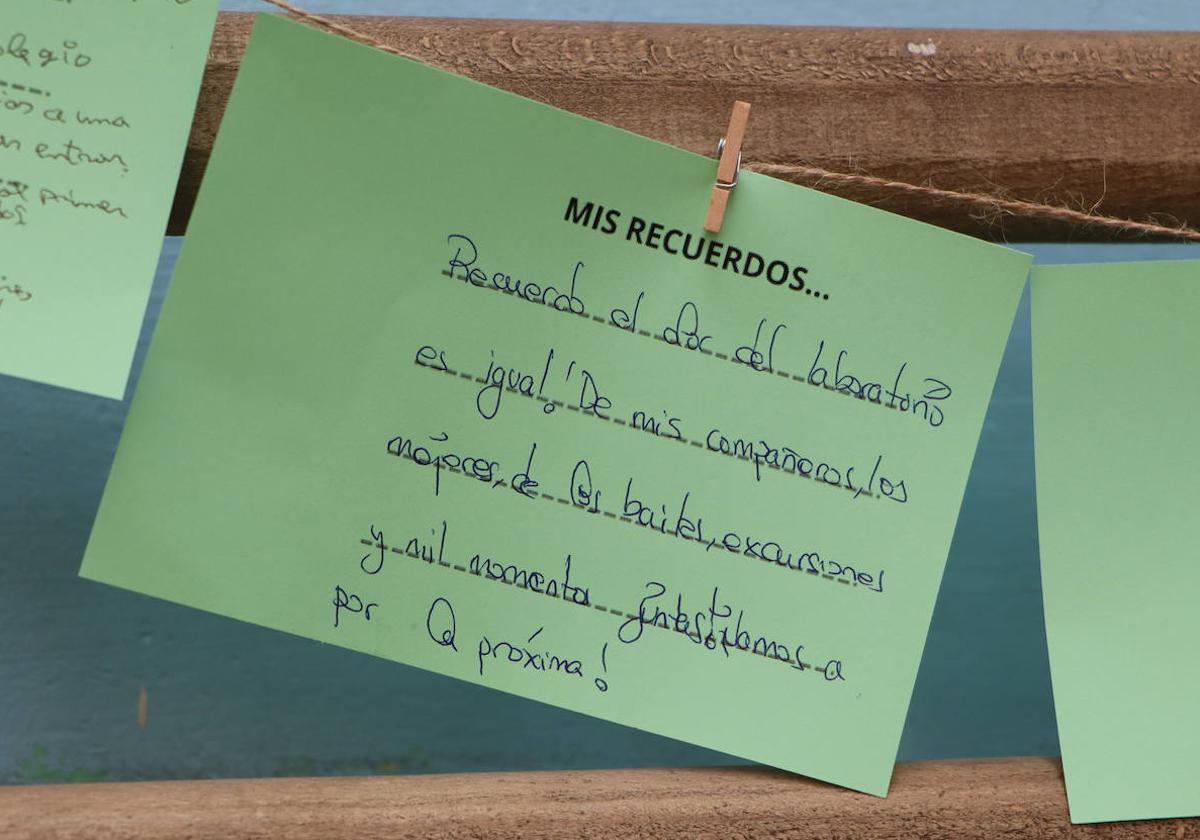 olegio
a una
entrar.
primer
MIS RECUERDOS...
Recuerdo el olor del laboratorio
es igual! De mis compañeros, los
mejores, de los bailes, excursiones
y mil momentos juntos. Vamos a
por la próxima!